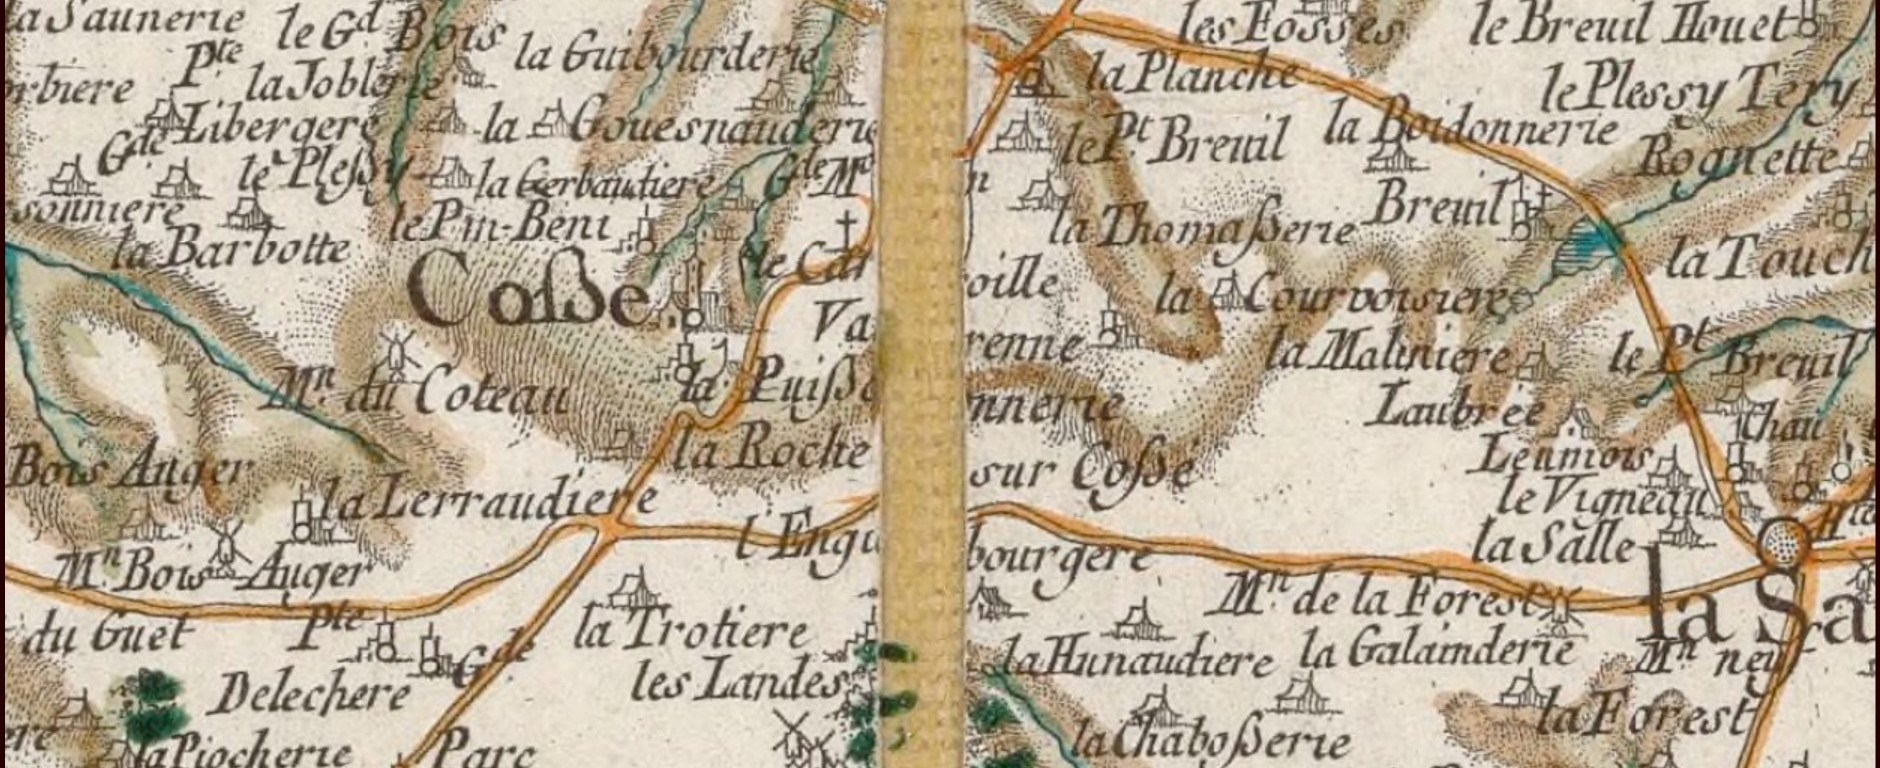 la Saunerie
le Gd Bois
la Guibourderie
Pte la Joblerie
rbiere
Libergere
la Gouesnauderie
Gde
le Plessy
la Gerbaudiere
Gde Mon
sonniere
le Pin-Beni
la Barbotte
Cosse
le Car oille
Va renne
Mn. du Coteau
la Puiss nnerie
la Roche sur Cossé
Bois Auger
la Lerraudiere
l'Engu bourgere
Mn Bois Auger
du Guet
Pte
Gde
la Trotiere
les Landes
Delechere
la Piocherie
Parc
les Fosses
le Breuil Houet
la Planche
le Plessy Tery
le Pt Breuil
la Boidonnerie
Rognette
Breuil
la Thomasserie
la Touch
la Courvoisiere
la Maliniere
le Pt Breuil
Laubree
Chau
Leumois
le Vigneau
la Salle
Hte
Mn de la Forest
la Sa
la Hunaudiere
la Galainderie
Mn ney
la Forest
la Chabosserie